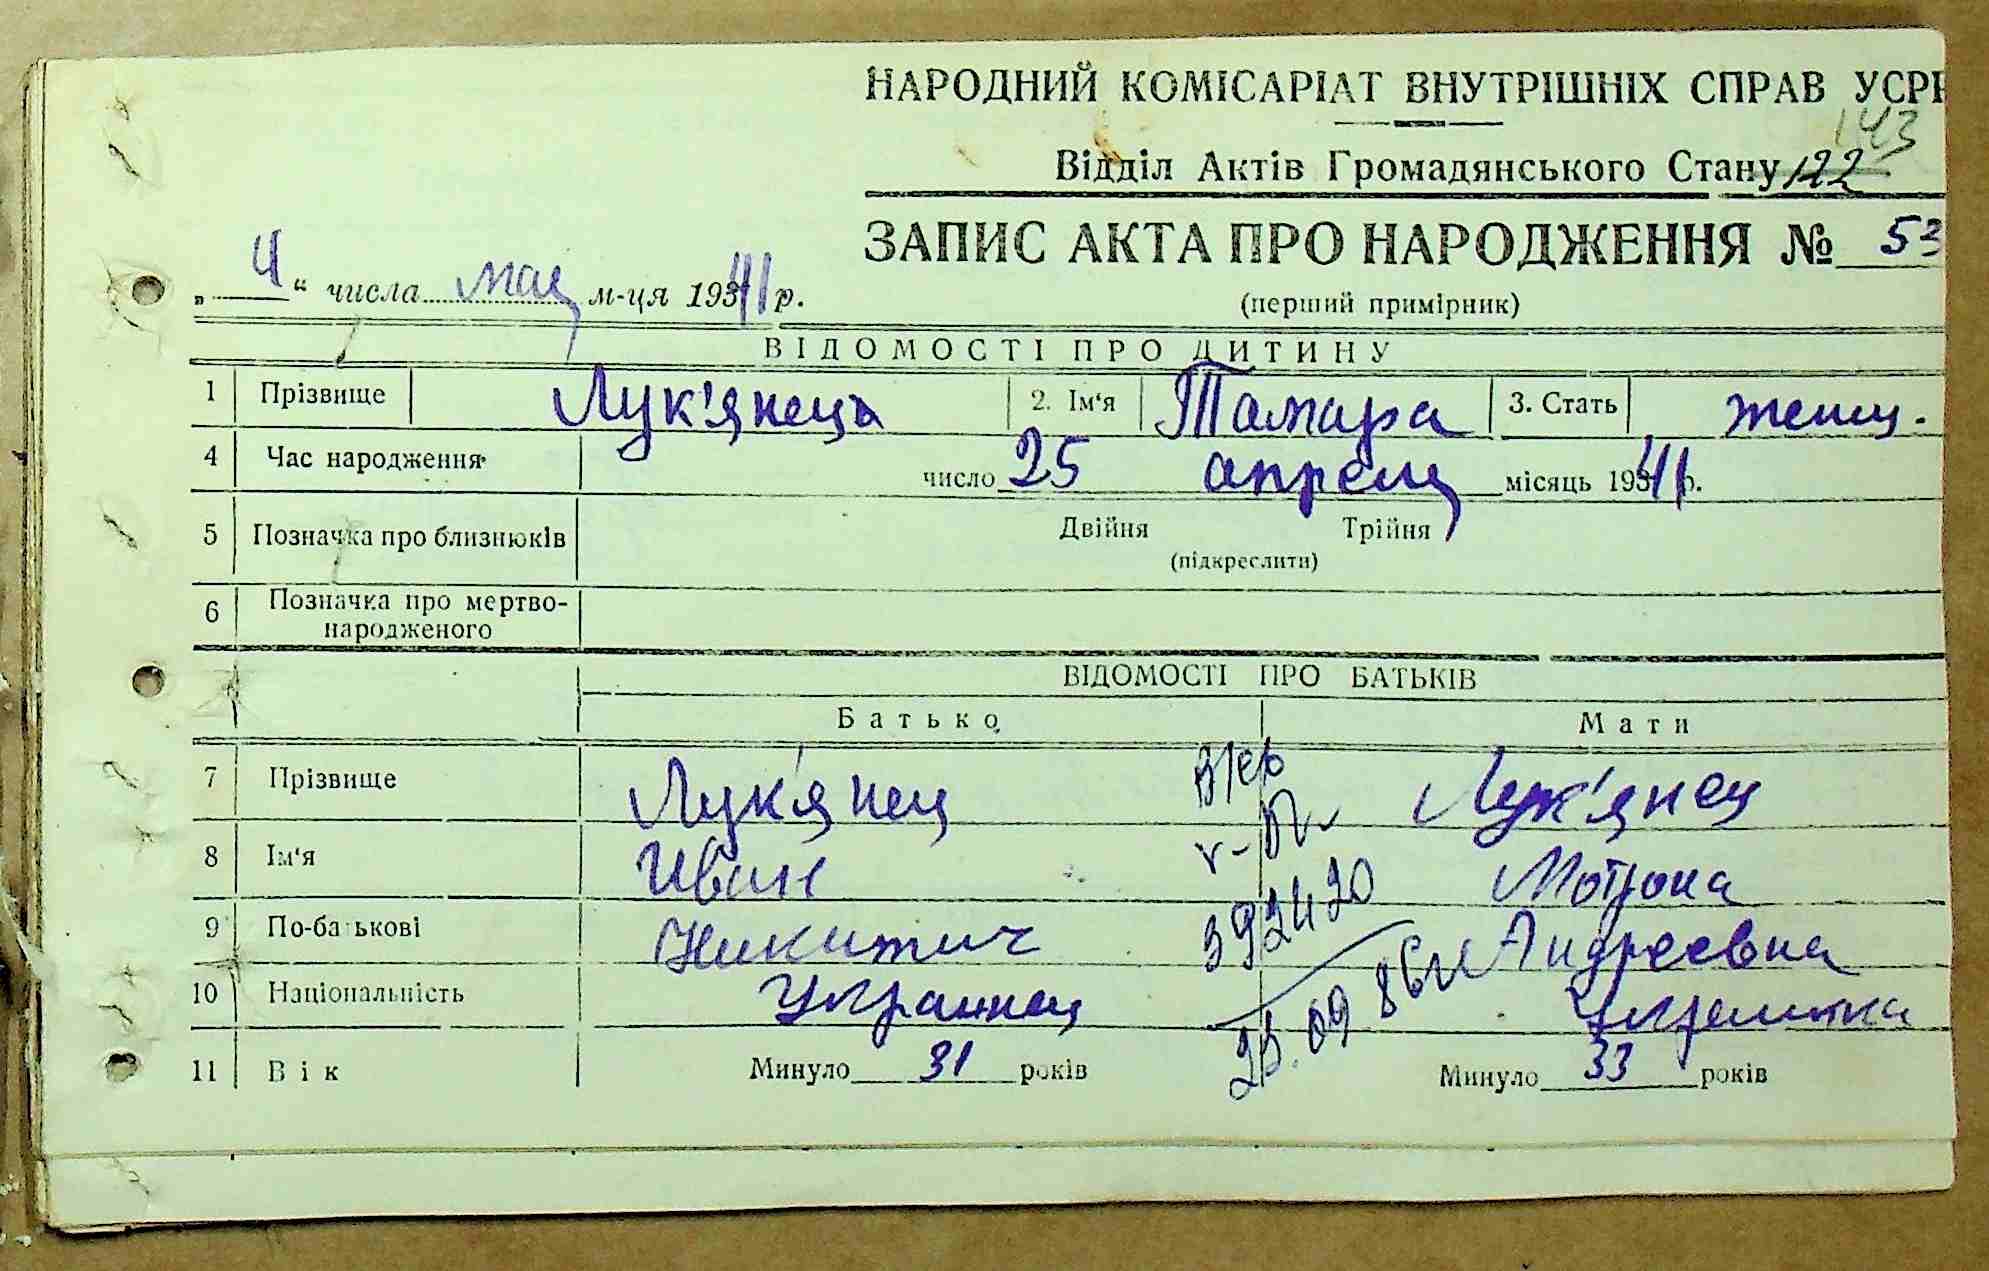 НАРОДНИЙ КОМІСАРІАТ ВНУТРІШНІХ СПРАВ УСРР
143
Відділ Актів Громадянського Стану 122
ЗАПИС АКТА ПРО НАРОДЖЕННЯ № 53
„ 4 “ числа мая м-ця 1941 р.
(перший примірник)
ВІДОМОСТІ ПРО ДИТИНУ
1 Прізвище Лук'янець 2. Ім'я Тамара 3. Стать женщ.
4 Час народження число 25 апреля місяць 1941 р.
5 Позначка про близнюків Двійня Трійня
(підкреслити)
6 Позначка про мертво-
народженого
ВІДОМОСТІ ПРО БАТЬКІВ
Батько Мати
7 Прізвище Лук'янец Лук'янец
8 Ім'я Иван Мотрона
9 По-батькові Никитич Андреевна
10 Національність Украинец Украинка
11 Вік Минуло 31 років Минуло 33 років
392420
23.09 86